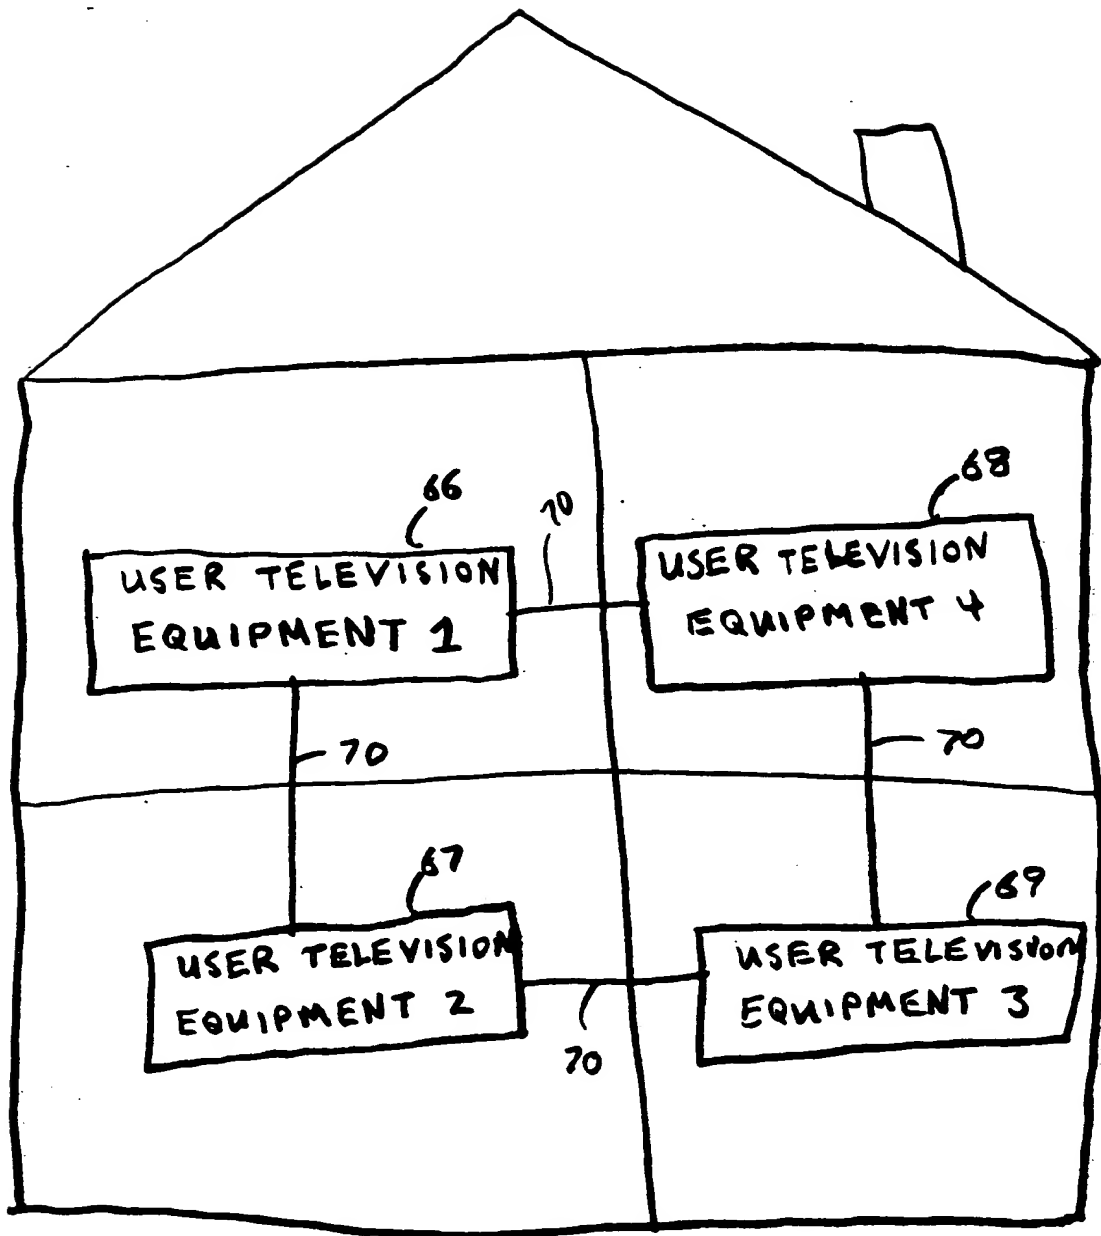 66
70
68
USER TELEVISION
EQUIPMENT 1
USER TELEVISION
EQUIPMENT 4
70
70
67
69
USER TELEVISION
EQUIPMENT 2
USER TELEVISION
EQUIPMENT 3
70